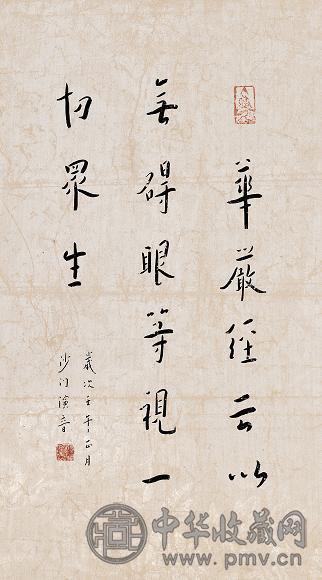 華嚴經云以
無碍眼等視一
切眾生
歲次壬午正月
沙門演音
中华收藏网
www.pmv.cn